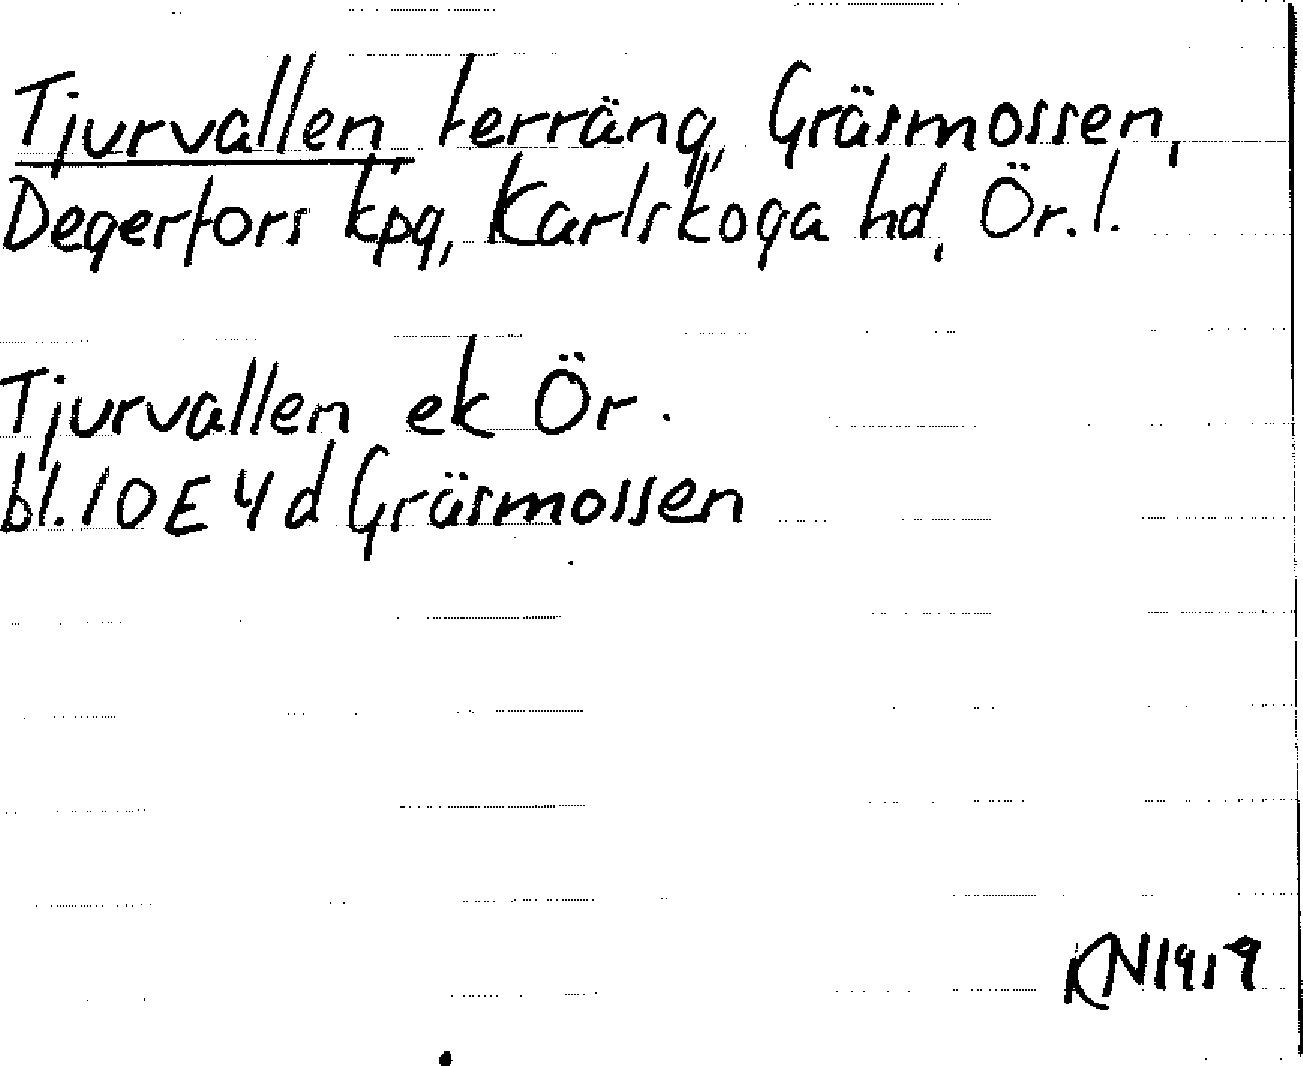 Tjurvallen, terräng, Gräsmossen,
Degerfors kpg, Karlskoga hd, Ör. l.
Tjurvallen ek Ör.
bl. 10E 4d Gräsmossen